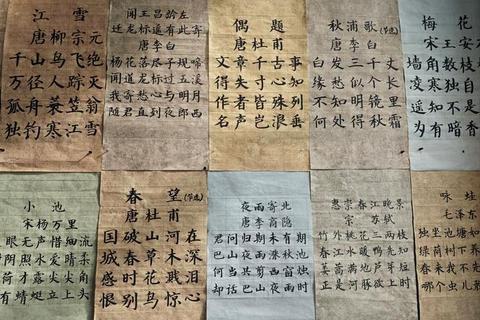 江雪
唐柳宗元
千山鸟飞绝
万径人踪灭
孤舟蓑笠翁
独钓寒江雪
闻王昌龄左
迁龙标遥有此寄
唐李白
杨花落尽子规啼
闻道龙标过五溪
我寄愁心与明月
随君直到夜郎西
偶题
唐杜甫
文章千古事
得失寸心知
作者皆殊列
名声岂浪垂
秋浦歌(节选)
唐李白
白发三千丈
缘愁似个长
不知明镜里
何处得秋霜
梅花
宋王安
墙角数枝
凌寒独自
遥知不是
为有暗香
小池
宋杨万里
眼无声惜细流
阴照水爱晴柔
荷才露尖尖角
有蜻蜓立上头
春望(节选)
唐杜甫
国破山河在
城春草木深
感时花溅泪
恨别鸟惊心
夜雨寄北
唐李商隐
君问归期未有期
巴山夜雨涨秋池
何当共剪西窗烛
却话巴山夜雨时
惠崇春江晚景
苏轼
竹外桃花三两枝
春江水暖鸭先知
蒌蒿满地芦芽短
正是河豚欲上时
咏蛙
毛泽东
独坐池塘如
绿荫树下养
春来我不先
哪个虫儿